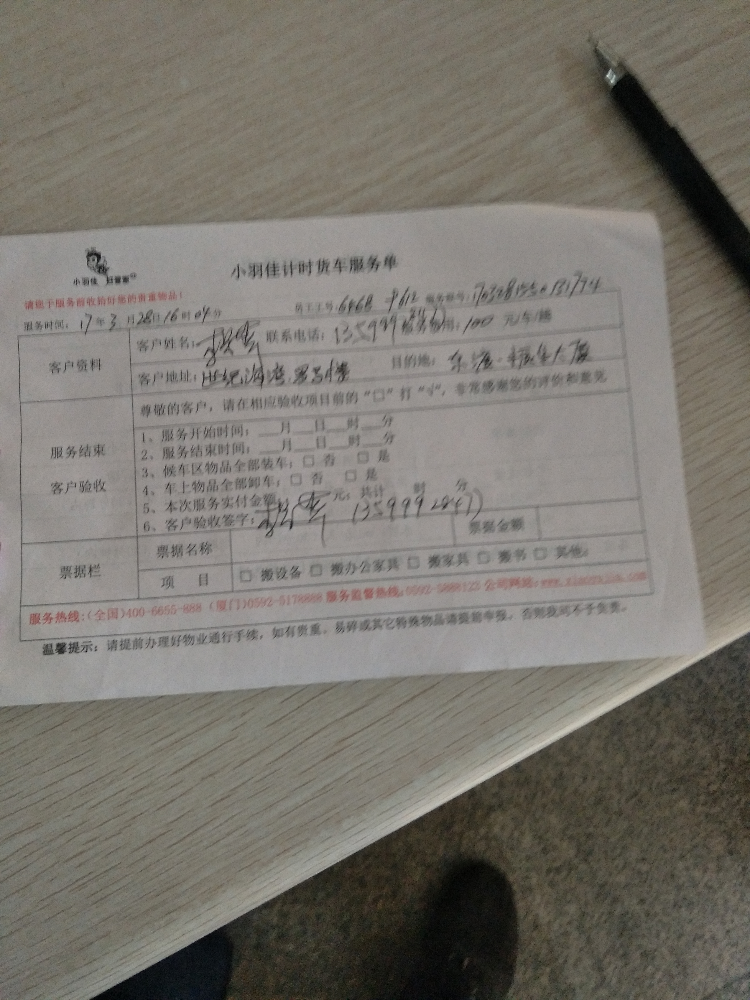 小羽佳 好管家
小羽佳计时货车服务单
请您于服务前收拾好您的贵重物品!
员工工号:6868 服务单号:
服务时间:17年3月28日16时04分
客户资料
客户姓名: 联系电话: 服务费用:100 元/车/趟
客户地址: 目的地:
尊敬的客户,请在相应验收项目前的“□”打“√”,非常感谢您的评价和意见
服务结束
客户验收
1、服务开始时间:___月___日___时___分
2、服务结束时间:___月___日___时___分
3、候车区物品全部装车:□ 否 □ 是
4、车上物品全部卸车:□ 否 □ 是
5、本次服务实付金额 元;共计 时 分
6、客户验收签字:
票据栏
票据名称 票据金额
项 目 □ 搬设备 □ 搬办公家具 □ 搬家具 □ 搬书 □ 其他:
服务热线:(全国)400-6655-888 (厦门)0592-5178888 服务监督热线: 公司网站:
温馨提示:请提前办理好物业通行手续,如有贵重、易碎或其它特殊物品请提前申报,否则我司不予负责。